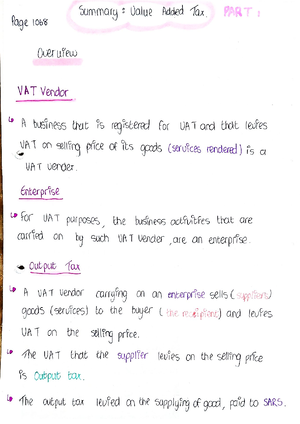 Summary : Value Added Tax. PART 1
Page 1068
Overview
VAT Vendor
A business that is registered for VAT and that levies
VAT on selling price of its goods (services rendered) is a
VAT vender.
Enterprise
For VAT purposes, the business activities that are
carried on by such VAT vender, are an enterprise.
Output Tax
A VAT vendor carrying on an enterprise sells (suppliers)
goods (services) to the buyer ( the recipient) and levies
VAT on the selling price.
The VAT that the supplier levies on the selling price
is Output tax.
The output tax levied on the supplying of good, paid to SARS.